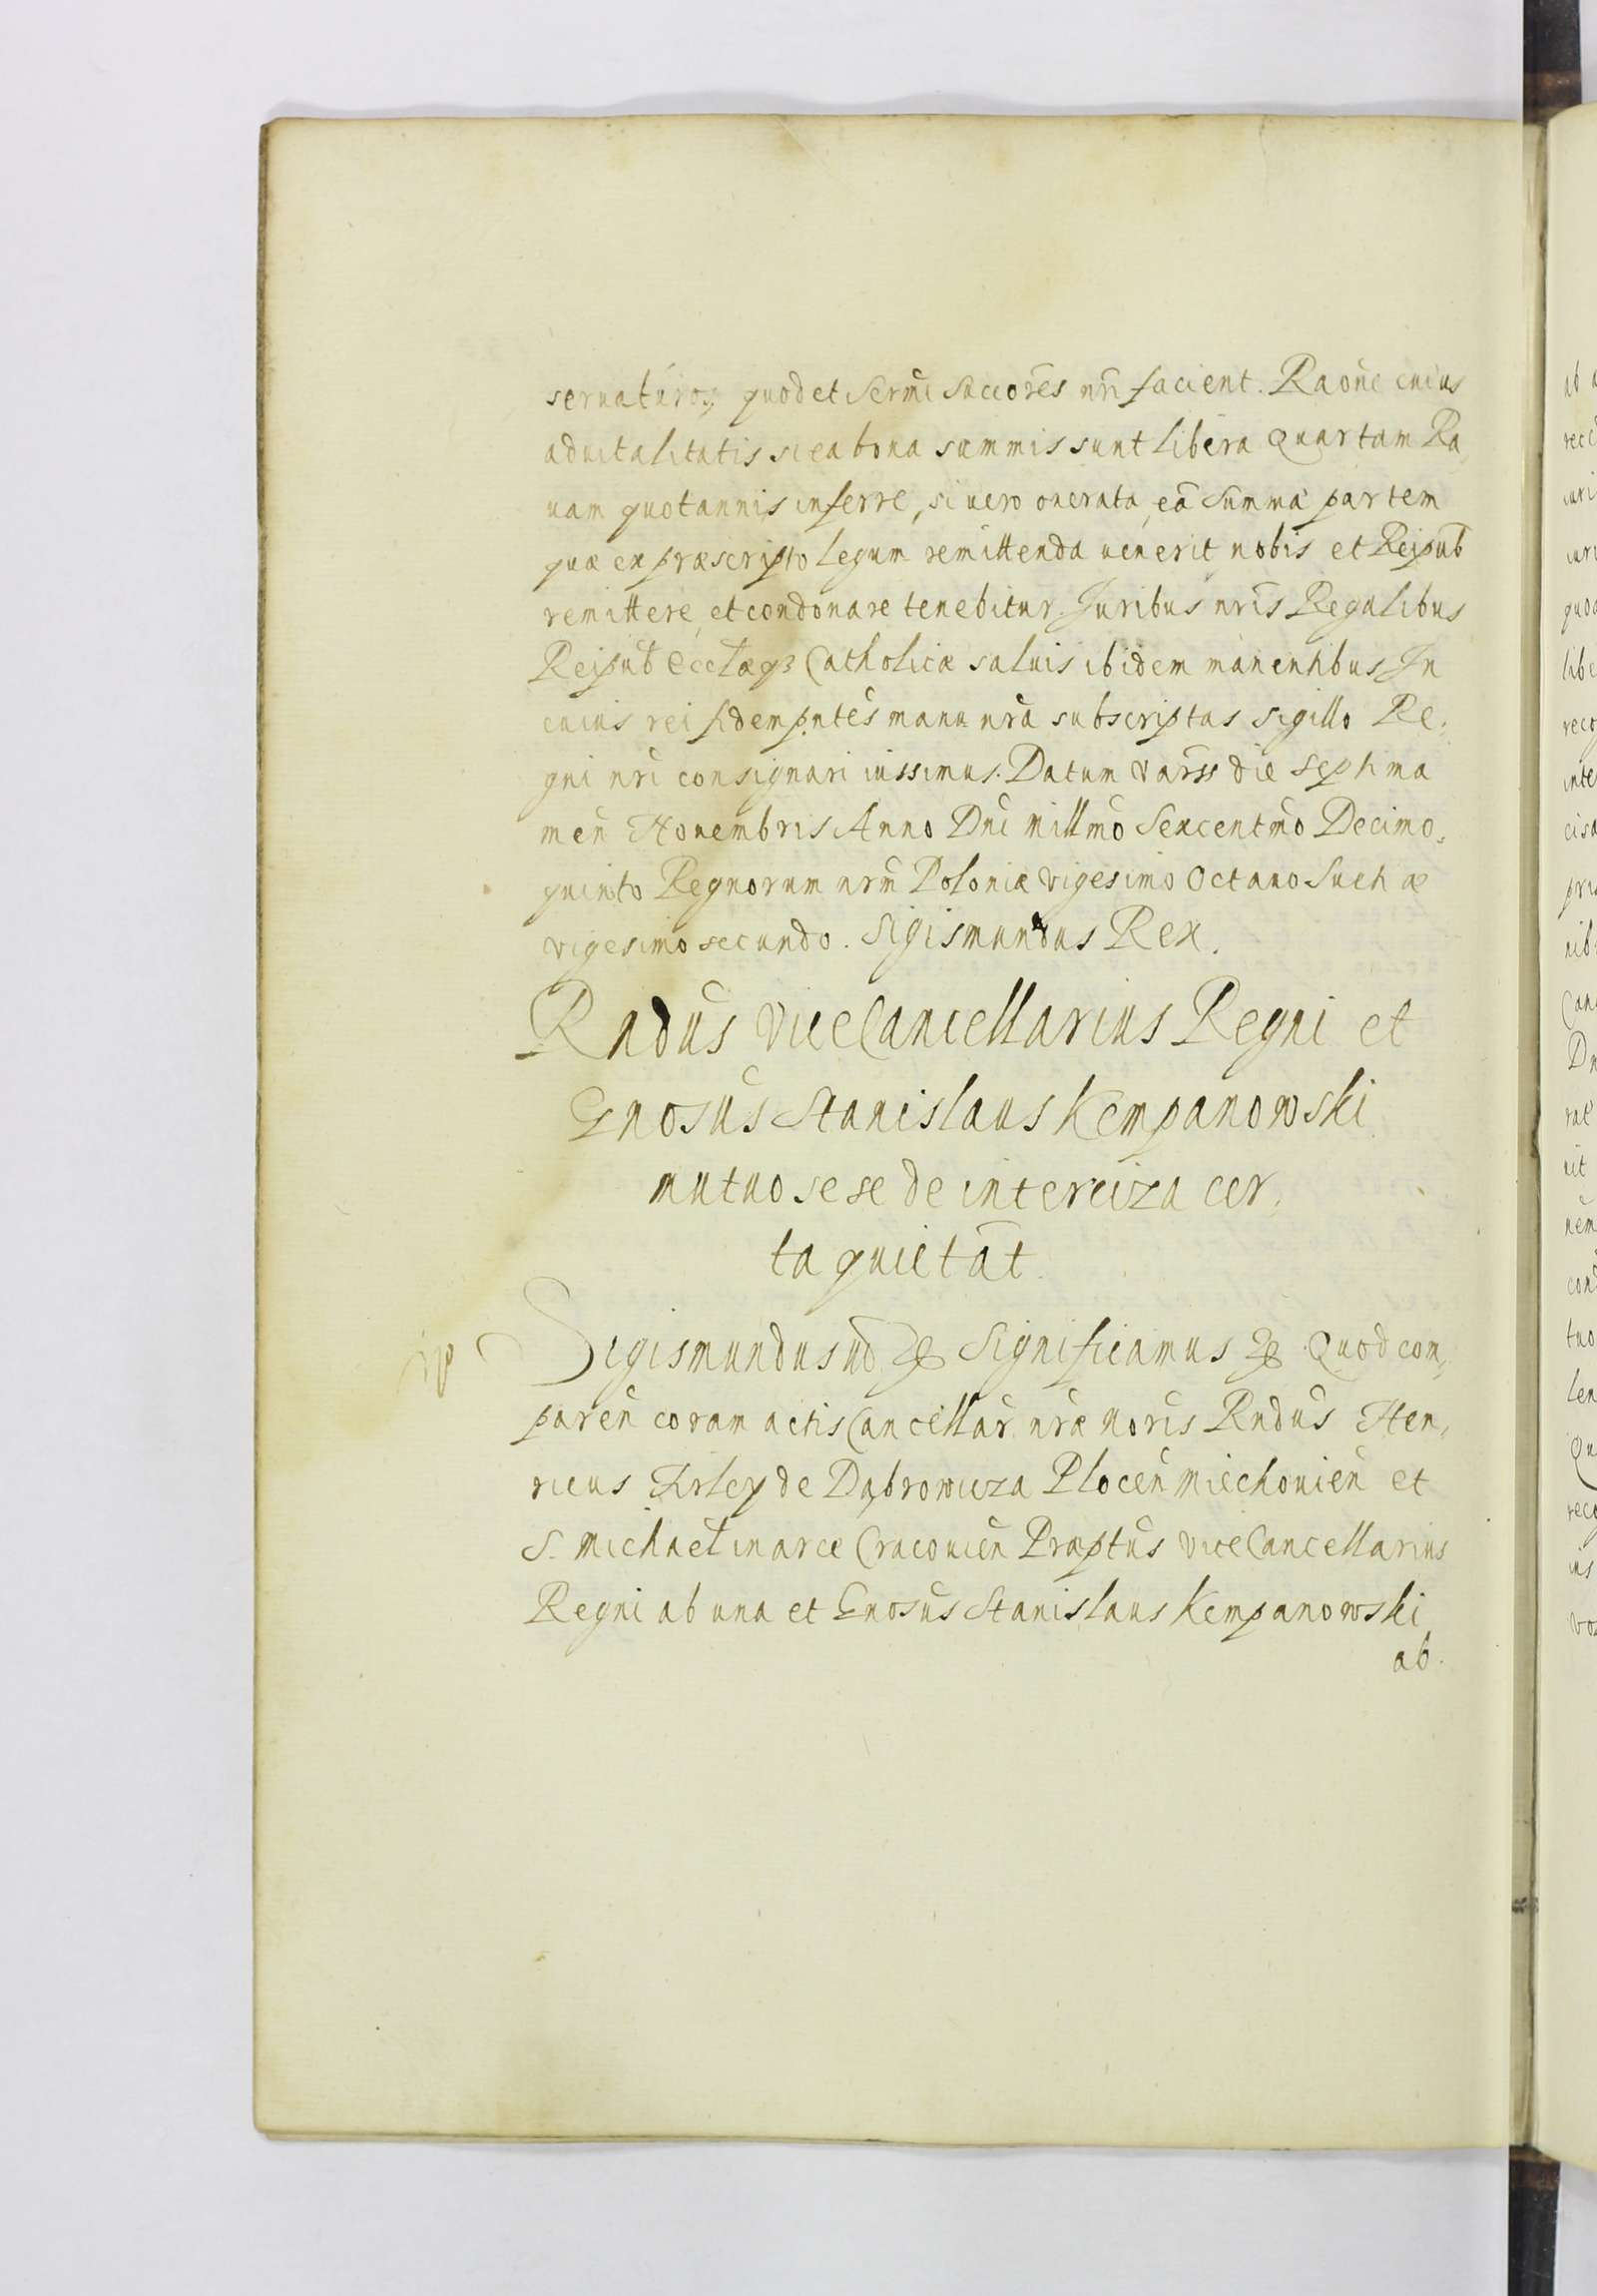 seruaturosq; quod et Serm̃i Succores nr̃i facient. Raõne cuius
aduitalitatis si ea bona summis sunt libera Quartam Ra,
uam quotannis inferre, si uero onerata, eã Summa partem
quæ ex præscripto legum remittenda uenerit nobis et Reipub̃
remittere, et condonare tenebitur. Juribus nr̃is Regalibus
Reipub̃ Eccl̃æq3 Catholicæ saluis ibidem manentibus. In
cuius rei fidem pñtes manu nr̃a subscriptas sigillo Re,
gni nr̃i consignari iussimus. Datum Varss̃ die Septima
men̄ Nouembris Anno Dñi Mill̃mo Sexcent̃mo Decimo,
quinto Regnorum nr̃m Poloniæ vigesimo Octauo Suetiæ
vigesimo secundo. Sigismundus Rex.
Rndũs ViceCancellarius Regni et
Gnosũs Stanislaus Kempanowski
mutuo sese de interciza cer,
ta quietãt.
Sigismundus ud̃ &c Significamus &c Quod con,
paren̄ coram actis Cancellar̃ nr̃æ Noris Rndũs Hen,
ricus Firley de Dąbrowicza Plocen̄ Miechouien̄ et
S. Michael in arce Cracouien̄ Præptũs ViceCancellarius
Regni ab una et Gnosũs Stanislaus Kempanowski
ab